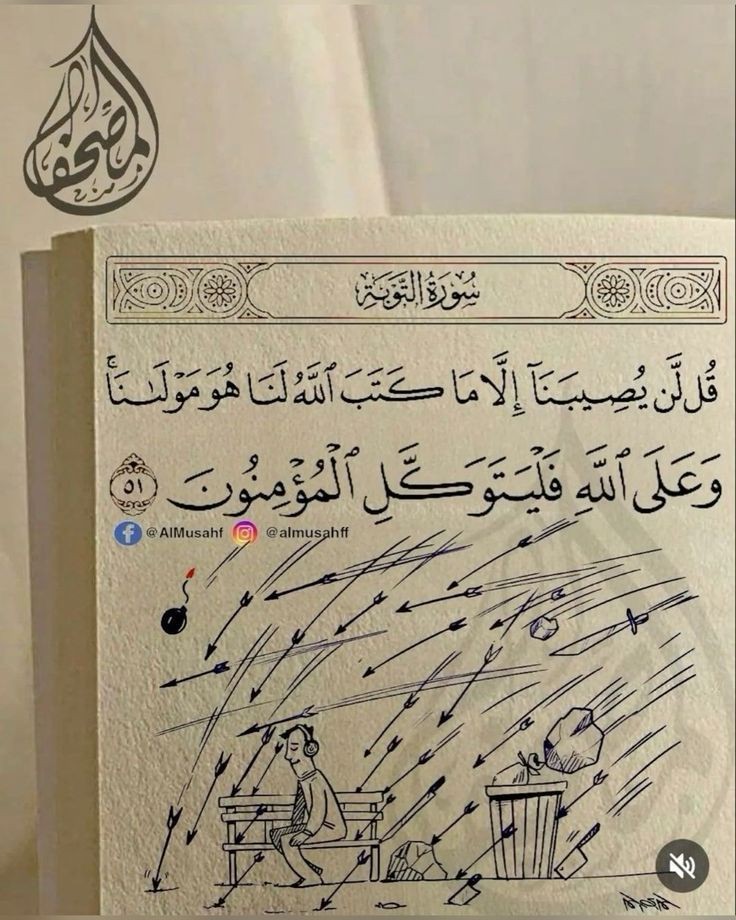 المصحف
سُورَةُ التَّوْبَةِ
قُل لَّن يُصِيبَنَآ إِلَّا مَا كَتَبَ ٱللَّهُ لَنَا هُوَ مَوْلَىٰنَاۚ
وَعَلَى ٱللَّهِ فَلْيَتَوَكَّلِ ٱلْمُؤْمِنُونَ ٥١
@AlMusahf @almusahff